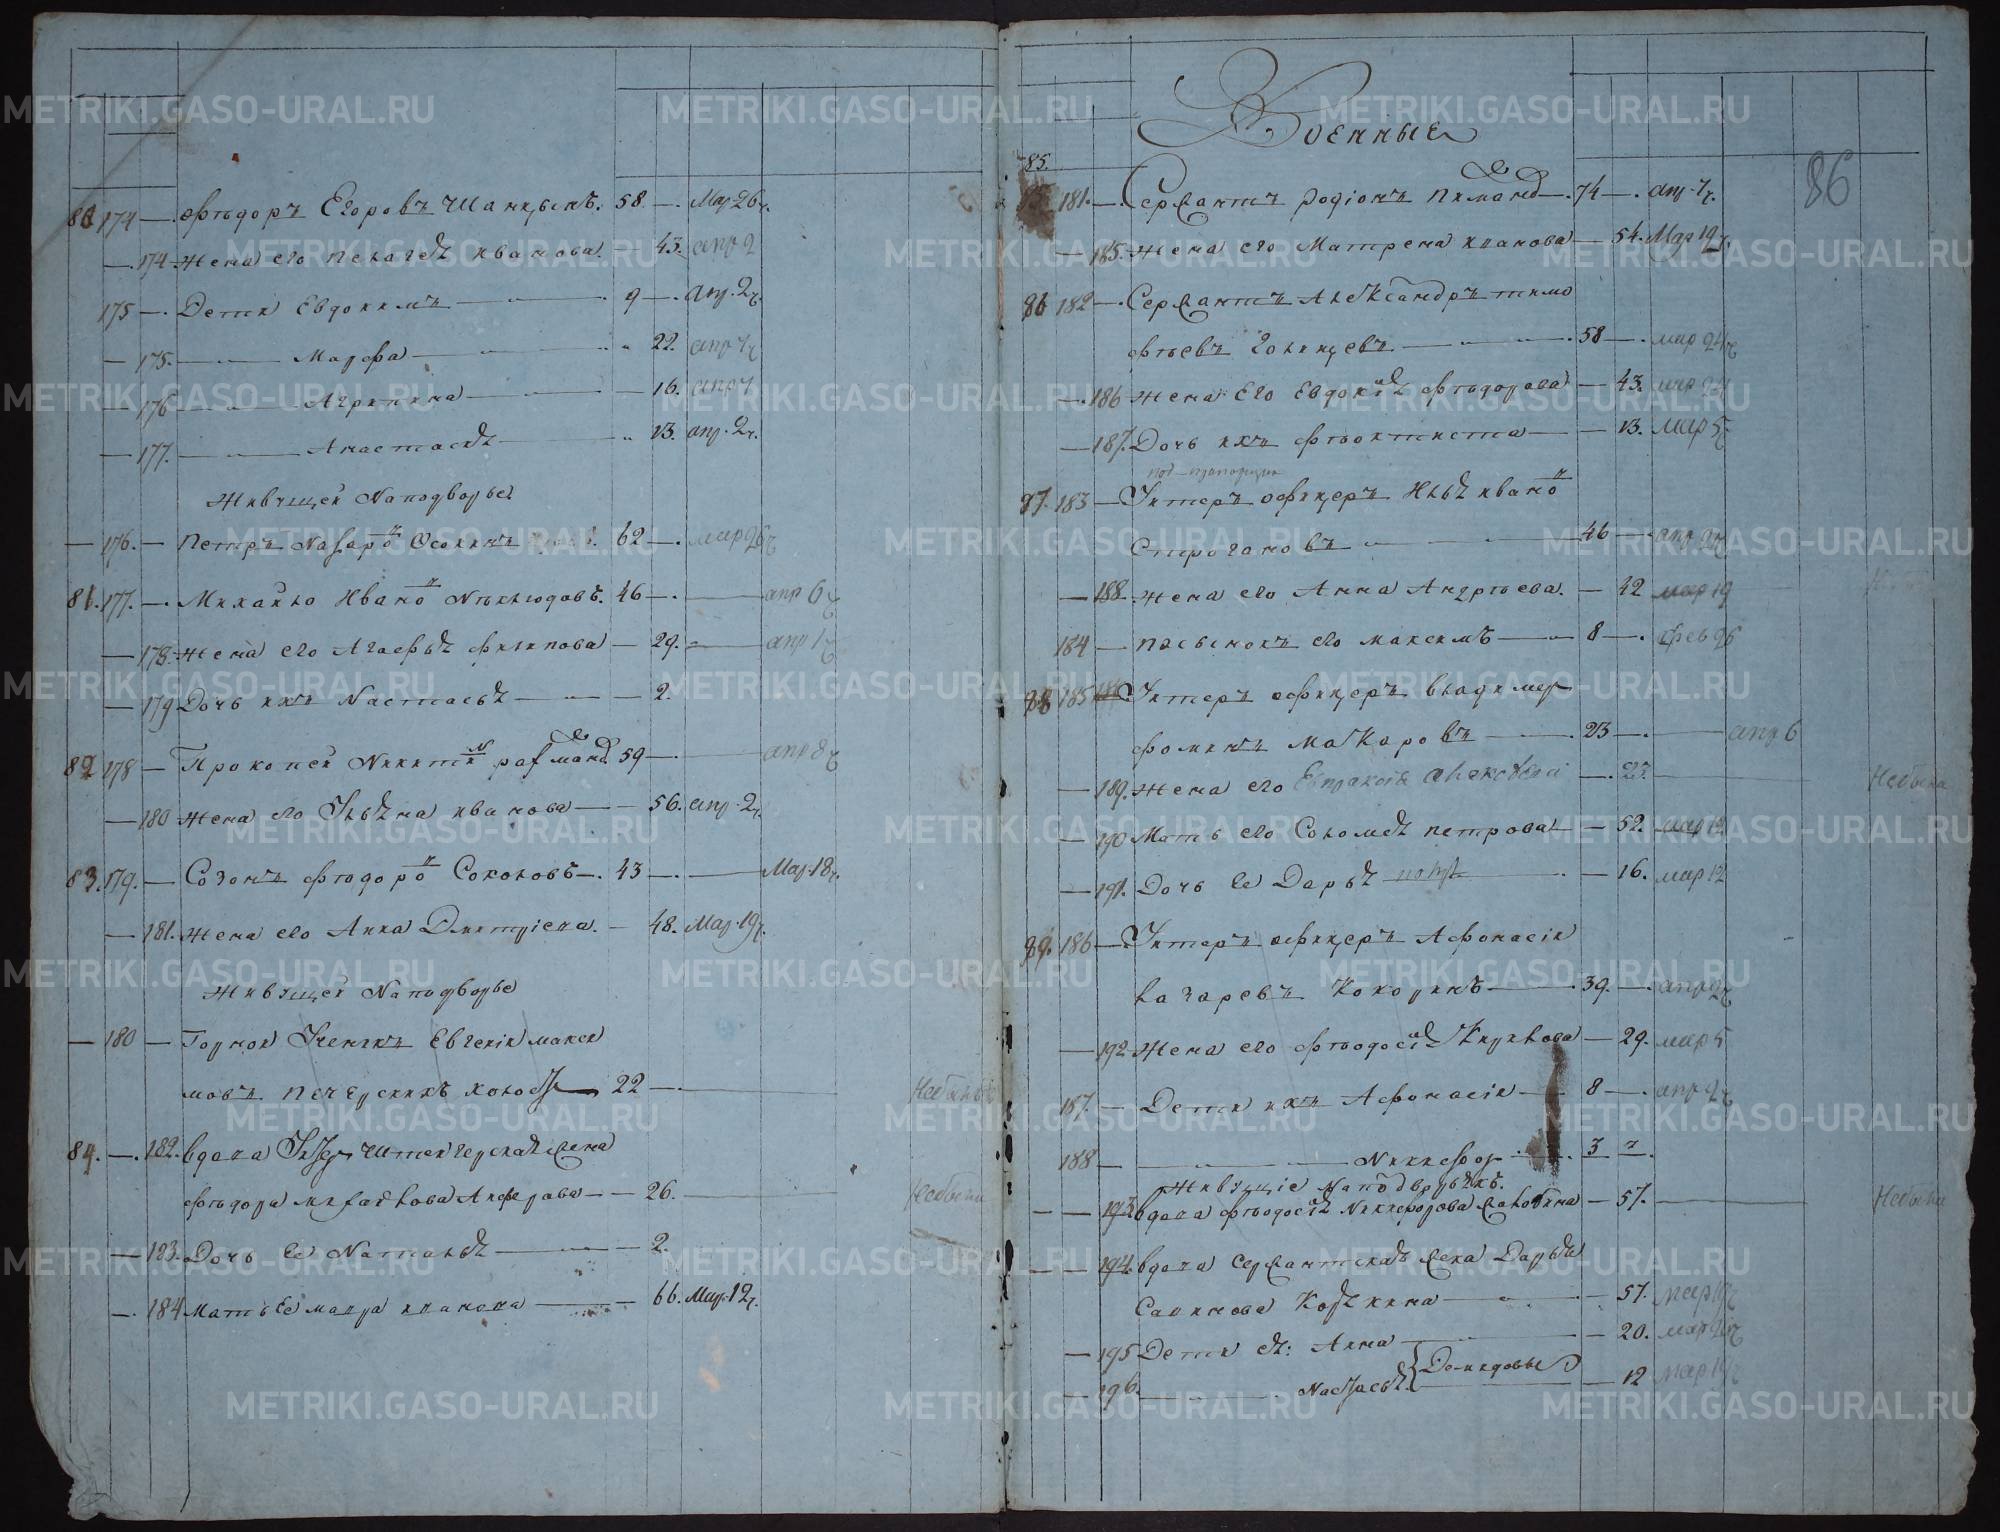 80 174 — Ѳедоръ Егоровъ Шанцынъ. 58 — Мар 26 ч.
— 174 Жена его Пелагея Иванова — 43. апр 2
175 — Дети Евдокимъ — 9 — апр. 2 ч.
— 175. — Марфа — 22. апр
— 176 — Агрипина — 16. апр
— 177. — Анастасея — 13. апр. 2 ч.
Живущей на подворье
— 176. — Петръ Назаро Осокинъ 62 — мар 26 ч
81. 177. — Михайло Ивано Неклюдовъ. 46 — апр 6 ч
— 178. Жена его Агафья Филипова — 29. — апр 1 ч
— 179 Дочь ихъ Настасья — 2.
82 178 — Прокопей Никити 59 — апр 8 ч
— 180 Жена его Ульяна Иванова — 56. апр. 2 ч.
83. 179. — Созонъ Ѳедоро Соколовъ — 43 — Мар. 18 ч.
— 181. Жена его Анна Дмитріева. — 48. Мар. 19 ч.
Живущей на подворье
— 180 — Горнои Ученикъ Евгеніи Макси
мовъ Печерскихъ холостъ 22 — Небылъ
84. — 182. Вдова Унтер Штейгерская жена
Ѳедора Михайлова Анферова — 26. Небыла
— 183. Дочь ее Наталья — 2.
— 184 Мать ее Мавра Иванова — 66. Мар. 12 ч.
Военные
86
85.
85 181. — Сержантъ Родіонъ 74 — апр. ч.
— 185. Жена его Матрена Иванова — 54. Мар 19 ч.
86 182 — Сержантъ Александръ Тимо
феевъ Голицевъ — 58 — мар 24 ч
— 186 Жена его Евдокія Ѳедорова — 43. мар 24
— 187. Дочь ихъ Феоктиста — 13. мар 5 ч
под-прапорщик
87. 183 — Унтеръ офицеръ Илья Ивано
Строгановъ — 46 — апр 2 ч
— 188. Жена его Анна Андреева. — 42 мар 19
184 — Пасынокъ его Максимъ — 8 — фев 26
88 185 Унтеръ офицеръ Владимер
Фоминъ Макаровъ — 23 — апр 6
— 189. Жена его Евпраксія Алексѣева — 23. Небыла
— 190 Мать его Соломея Петрова — 52. мар 12
— 191. Дочь ее Дарья — 16. мар 12
89. 186 — Унтеръ офицеръ Афонасіи
Лазаревъ Кокоринъ — 39. — апр 2 ч
— 192 Жена его Феодосія Кирилова — 29. мар 5
187. — Дети ихъ Афонасіи — 8 — апр 2 ч
188 — Никифор 3
Живущіе на подворьяхъ.
— — 193 Вдова Феодосія Никифорова — 57. Небыла
— — 194. Вдова Сержантская жена Дарья
Савинова — 57. мар 19 ч
— 195 Дети ея: Анна — 20. мар 26 ч
196. — Настасья. { Демидовы — 12 мар 19 ч